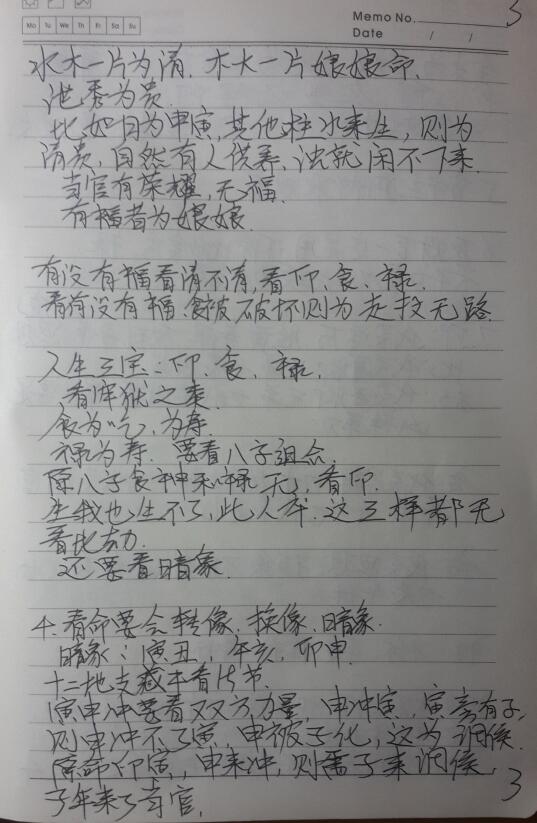 3
Memo No.
Mo Tu We Th Fr Sa Su
Date / /
水木一片为清.木火一片娘娘命.
泄秀为贵.
比如日为甲寅,其他柱水来生,则为
清贵,自然有人供养、浊就闲不下来.
当官有荣耀,无福.
有福者为娘娘.
有没有福看清不清,看印、食、禄.
看有没有福.食被破坏则为走投无路.
人生三宝:印、食、禄.
看库狱之来
食为吃,为寿.
禄为寿.要看八字组合.
除八字食神和禄无,看印.
生我也生不了,此人夲.这三样都无
看比劫.
还要看暗象.
4.看命要会转像、换像、暗象.
暗象:寅丑,午亥,卯申.
十二地支藏干看365节.
寅申冲要看双方力量,申冲寅,寅旁有子,
则申冲不了寅,申被子化,这为调候.
原命印寅,申来冲,则需子来调候,
子年来了当官.
3